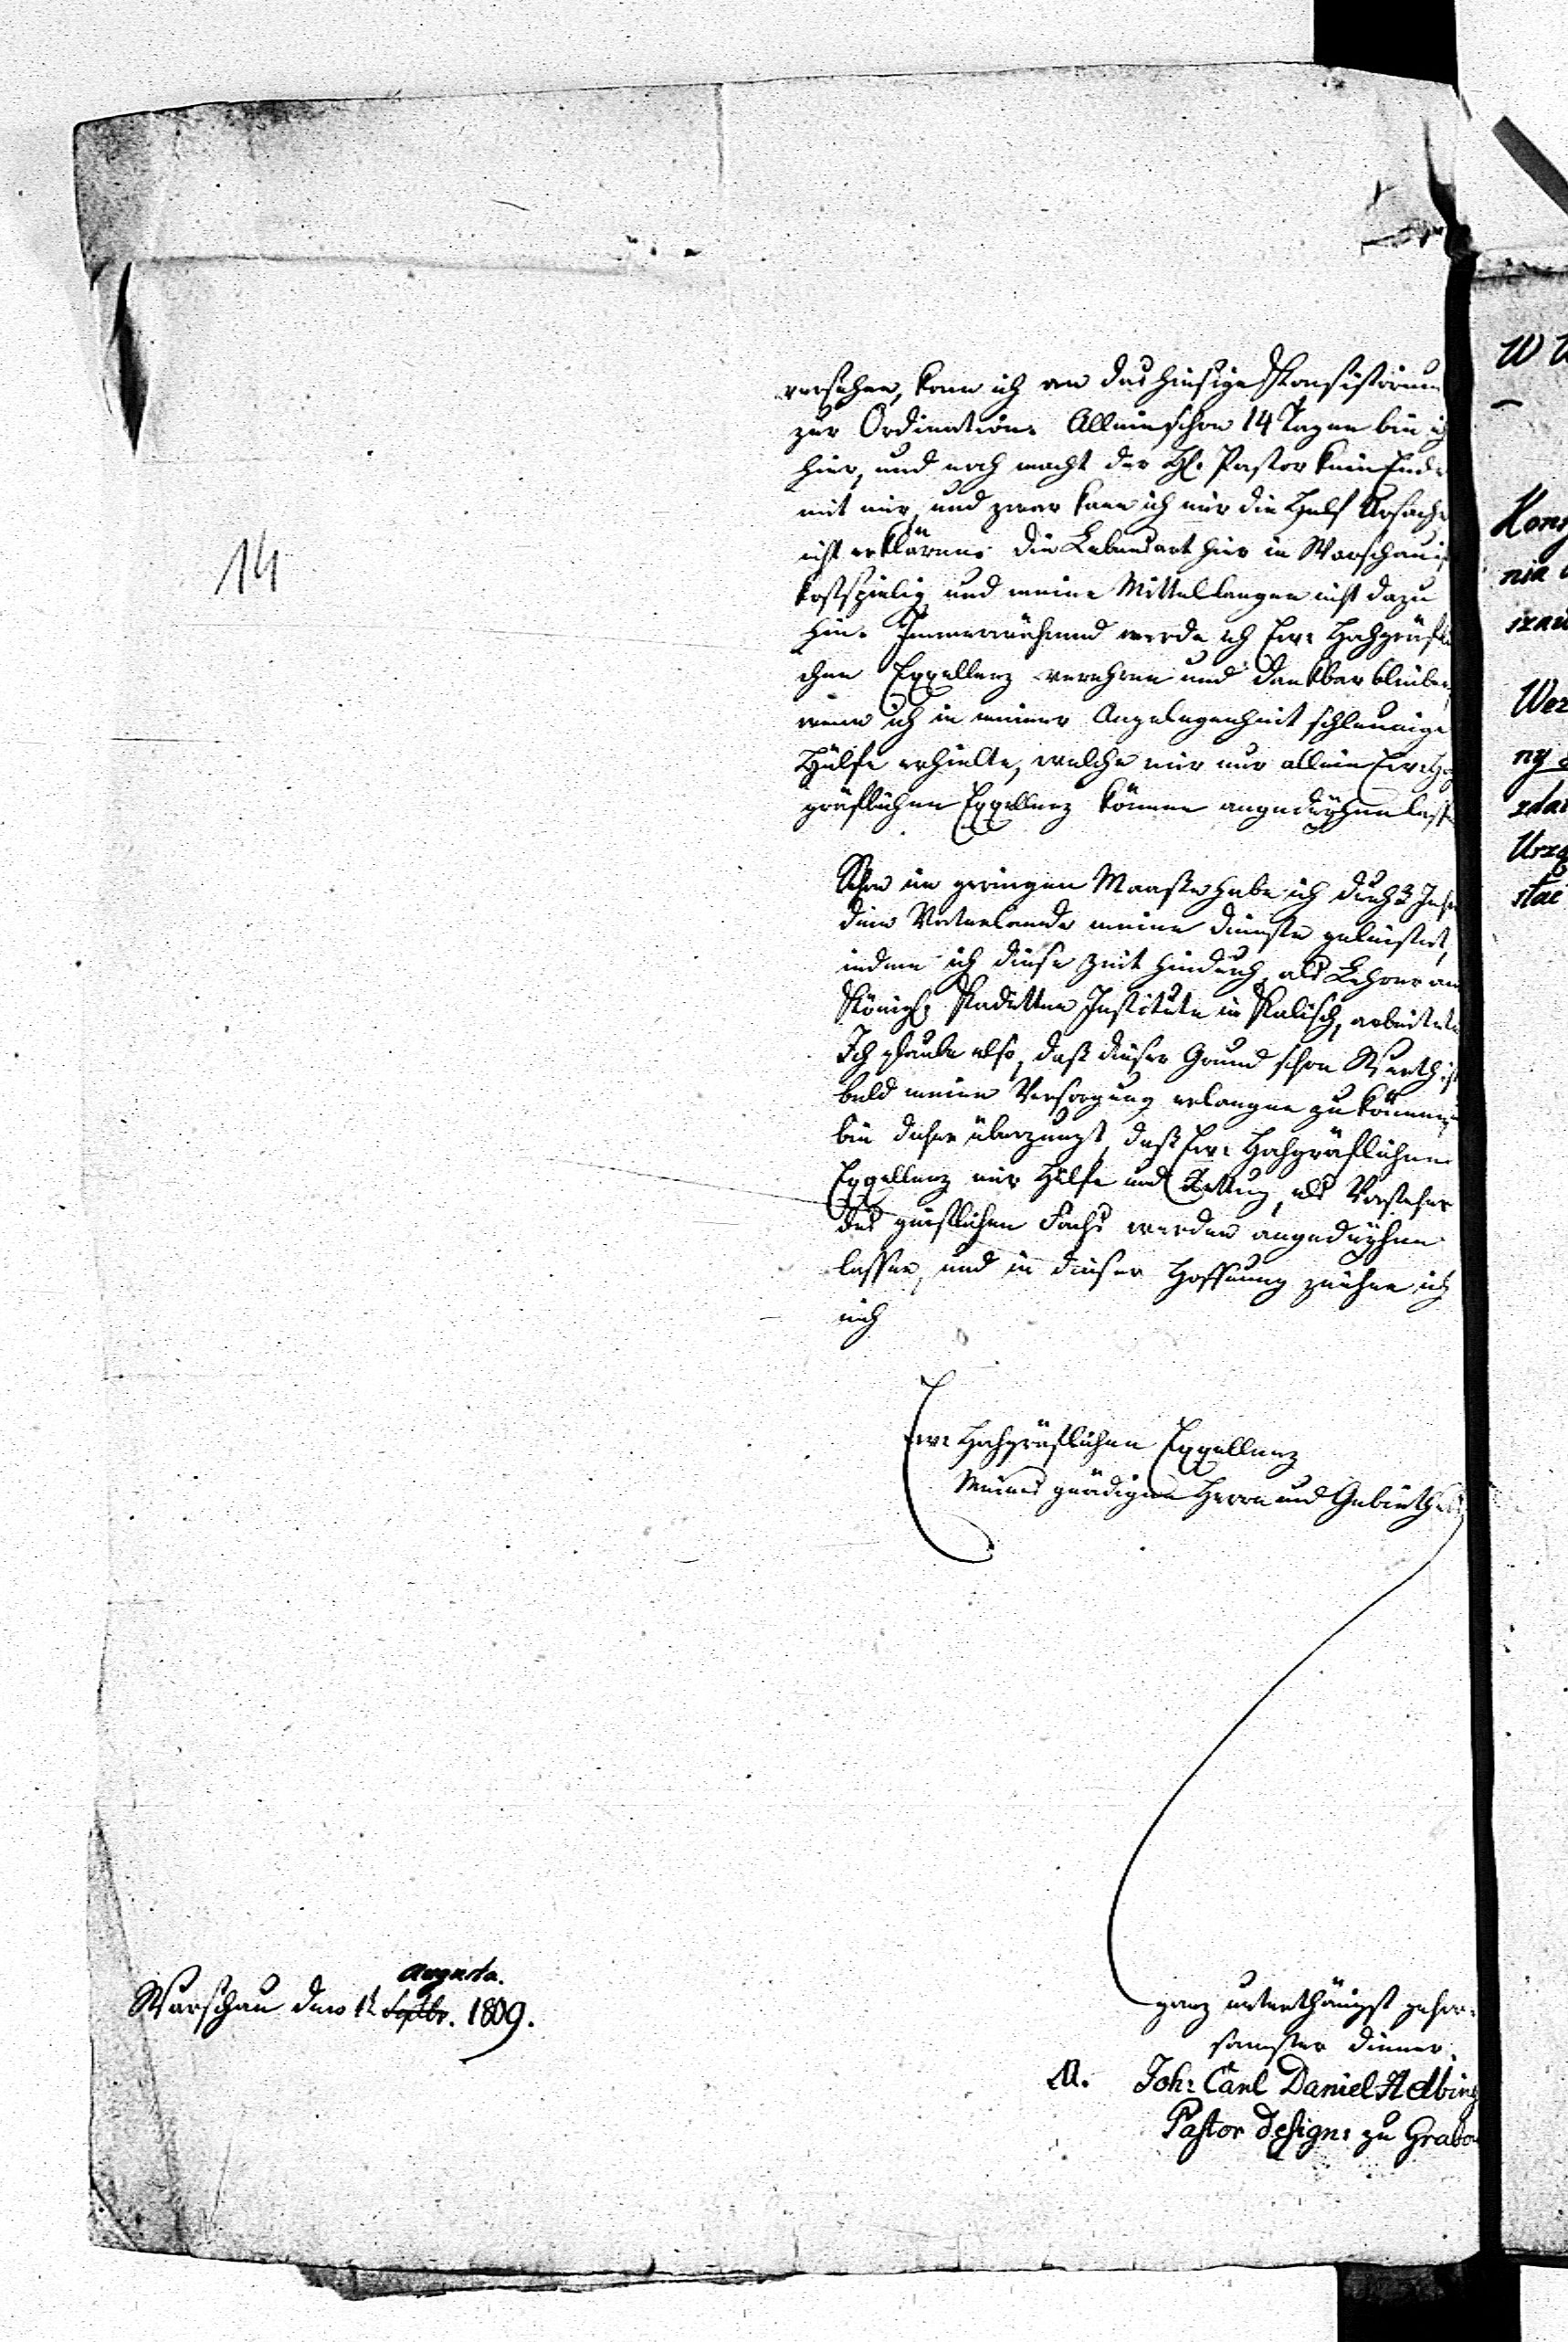 14
versehen, kam ich an das hiesige Konsistorium
zur Ordination. Allein schon 14 Tage bin ich
hier, und noch macht der H. Pastor kein Ende
mit mir, und zwar kann ich mir die Ursache
nicht erklären. Die Lebensart hier in Warschau ist
kostspielig und meine Mittel langen nicht dazu
hin. Immerwährend werde ich Ew: Hochgräfli
chen Exzellenz verehren und dankbar bleiben,
wenn ich in meiner Angelegenheit schleunige
Hülfe erhielte, welche mir nur allein Ew: Ho
gräflichen Exzellenz können angedeyhen lasse
Schon im geringen Maaße habe ich durch 3 Jahr
dem Vaterlande meine Dienste geleistet,
indem ich diese Zeit hindurch, als Lehrer am
Königl: Kadetten Institute in Kalisch, arbeitete
Ich glaube also, daß dieser Grund schon Werth ist
bald meine Versorgung erlangen zu können,
bin daher überzeugt, daß Ew: Hochgräflichen
Exzellenz mir Hülfe und Rettung, als Vorsteher
des geistlichen Fachs werden angedeyhen
lassen, und in dieser Hoffnung zeichne ich
mich
Ew: Hochgräflichen Exzellenz
Meines gnädigen Herrn und Gebieth
Augusta.
Warschau den Septbr. 1809.
ganz unterthänigst gehor:
samster Diener.
M. Joh: Carl Daniel Helbing
Pastor Design: zu Grabo
W
Kons
nia
szaw
Wez
ny
zdan
Urzę
stac